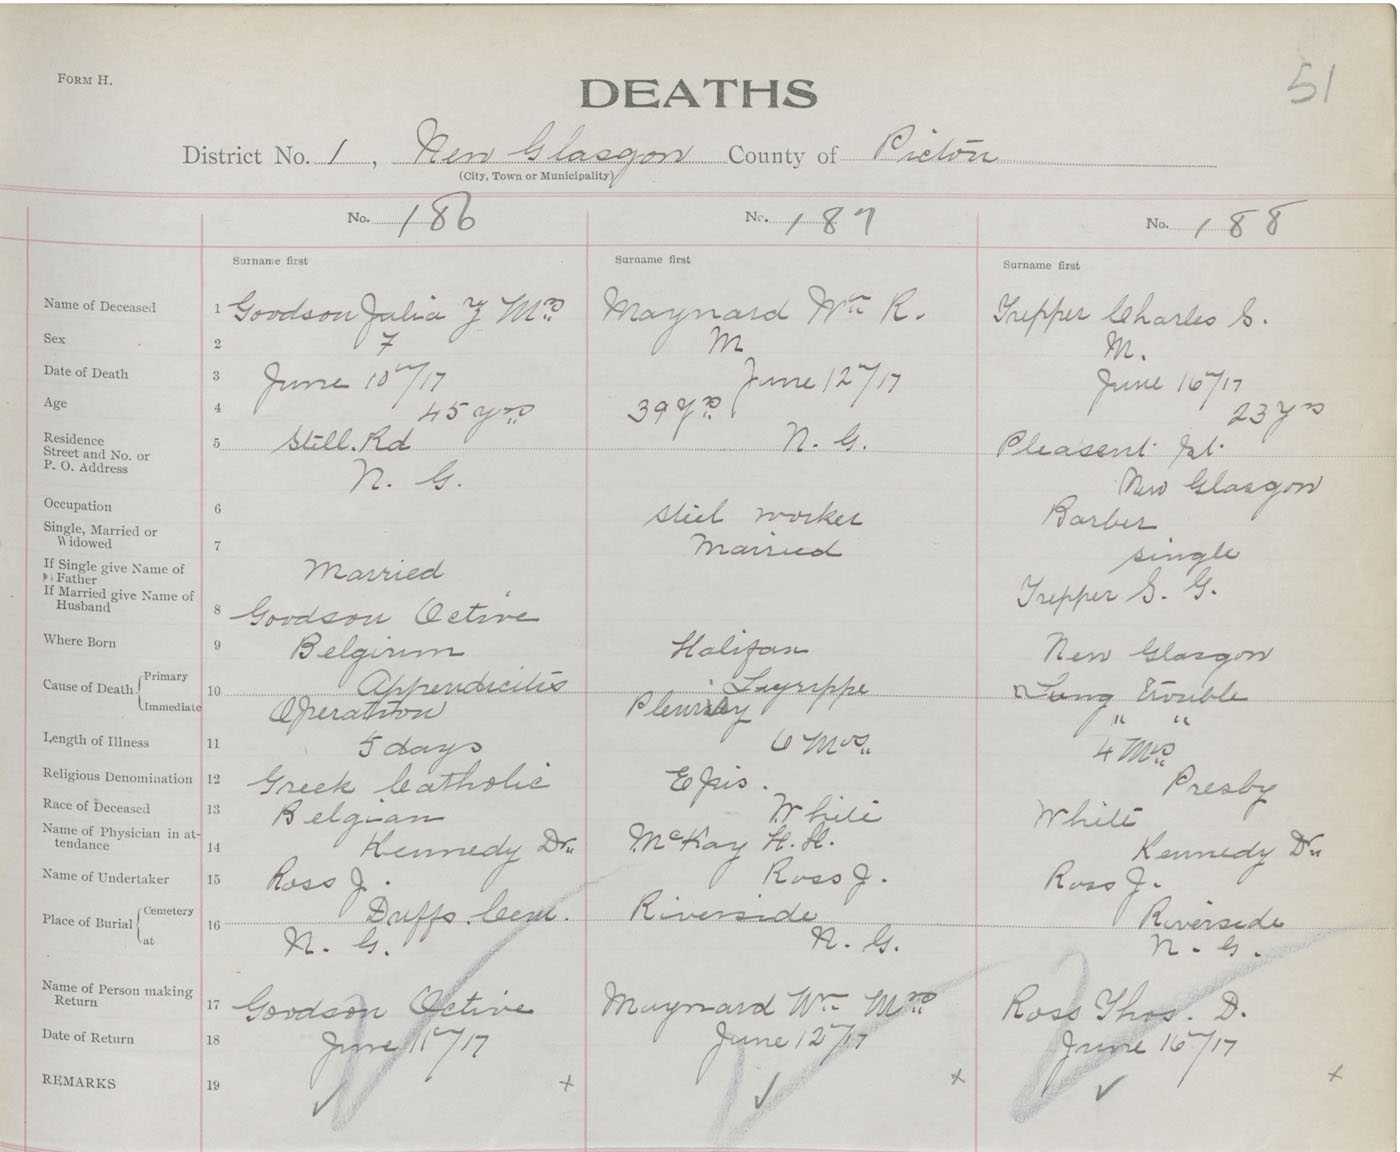 FORM H.
DEATHS
51
District No. 1, New Glasgow County of Pictou
(City, Town or Municipality)
No. 186 No. 187 No. 188
Surname first Surname first Surname first
Name of Deceased 1 Goodson Julia Mrs Maynard Wm R. Trepper Charles S.
Sex 2 F M M.
Date of Death 3 June 10"/17 June 12"/17 June 16"/17
Age 4 45 yrs 39 yrs 23 yrs
Residence
Street and No. or
P. O. Address
5 Stell. Rd N. G. Pleasent St.
N. G. New Glasgow
Occupation 6 Steel worker Barber
Single, Married or
Widowed
7 Married Married Single
If Single give Name of
Father
If Married give Name of
Husband
8 Goodson Octive Trepper S. G.
Where Born 9 Belgium Halifax New Glasgow
Cause of Death { Primary 10 Appendicitis Lagrippe Lung trouble
Immediate Operation Pleurisy " "
Length of Illness 11 5 days 6 Mos. 4 Mos.
Religious Denomination 12 Greek Catholic Epis. Presby
Race of Deceased 13 Belgian White White
Name of Physician in at-
tendance
14 Kennedy Dr. McKay H. H. Kennedy Dr.
Name of Undertaker 15 Ross J. Ross J. Ross J.
Place of Burial { Cemetery 16 Duffs Cem. Riverside Riverside
at N. G. N. G. N. G.
Name of Person making
Return
17 Goodson Octive Maynard Wm Mrs Ross Thos. D.
Date of Return 18 June 11"/17 June 12"/17 June 16"/17
REMARKS 19 ✓ x ✓ x ✓ x